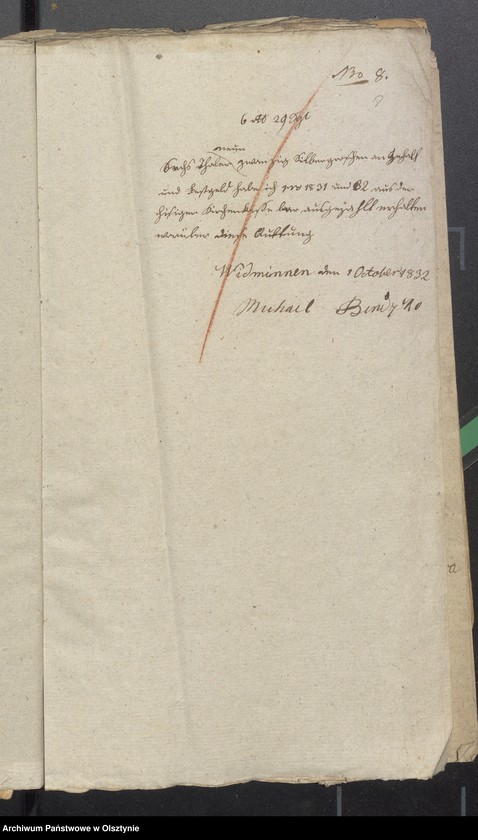 No 8.
6 rt 29 Sgl
neun
Sechs Thaler zwanzig Silbergroschen an Gehalt
und Kostgeld habe ich pro 1831 und 32 aus der
hiesigen Kirchenkasse baar ausgezahlt erhalten
worüber diese Quittung
Widminnen den 1 October 1832
Michael
Archiwum Państwowe w Olsztynie